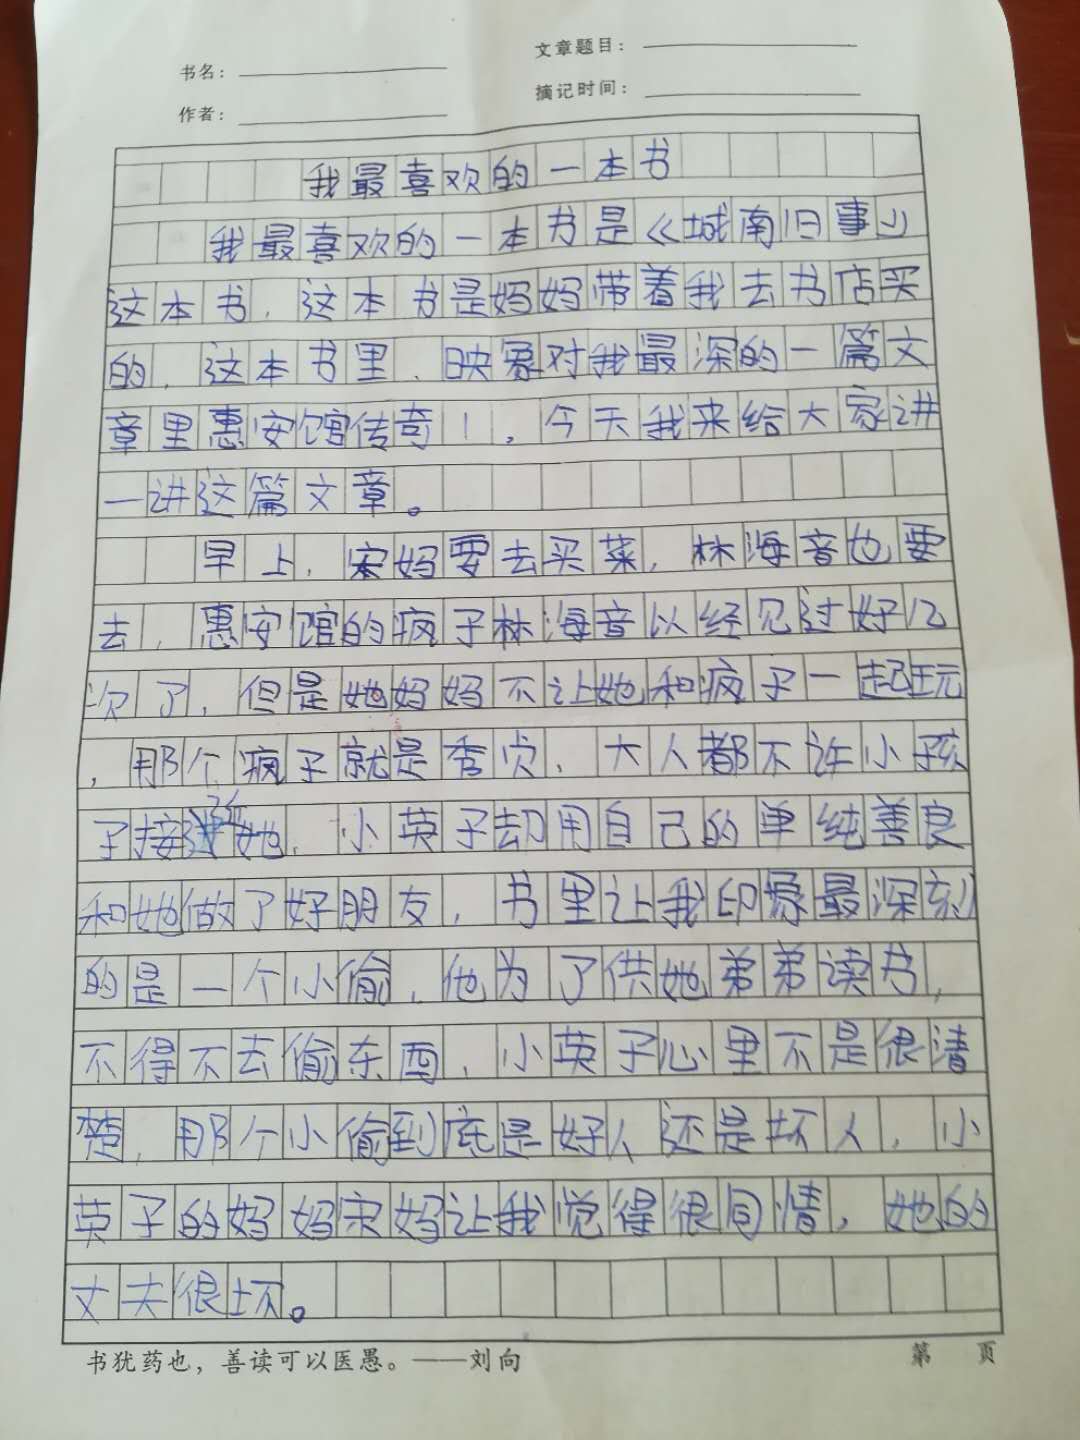 书名：
文章题目：
作者：
摘记时间：
我最喜欢的一本书
我最喜欢的一本书是《城南旧事》
这本书，这本书是妈妈带着我去书店买
的，这本书里，映象对我最深的一篇文
章里惠安馆传奇！，今天我来给大家讲
一讲这篇文章。
早上，宋妈要去买菜，林海音也要
去，惠安馆的疯子林海音以经见过好几
次了，但是她妈妈不让她和疯子一起玩
，那个疯子就是秀贞，大人都不许小孩
子接近她，小英子却用自己的单纯善良
和她做了好朋友，书里让我印象最深刻
的是一个小偷，他为了供她弟弟读书，
不得不去偷东西，小英子心里不是很清
楚，那个小偷到底是好人还是坏人，小
英子的妈妈宋妈让我觉得很同情，她的
丈夫很坏。
书犹药也，善读可以医愚。——刘向
第 页